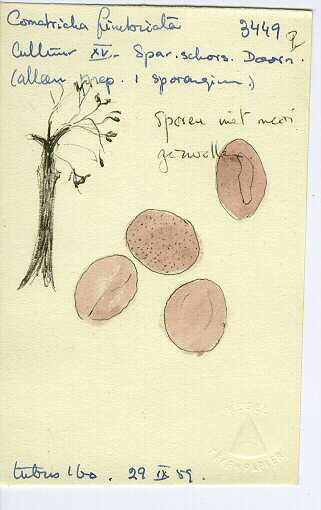 Comatricha fimbriata
3449
Cultuur XV. Spar. schors. Doorn.
(alleen prep. 1 sporangium.)
Sporen niet meer
gezwollen
tubus 160. 29 IX 59.